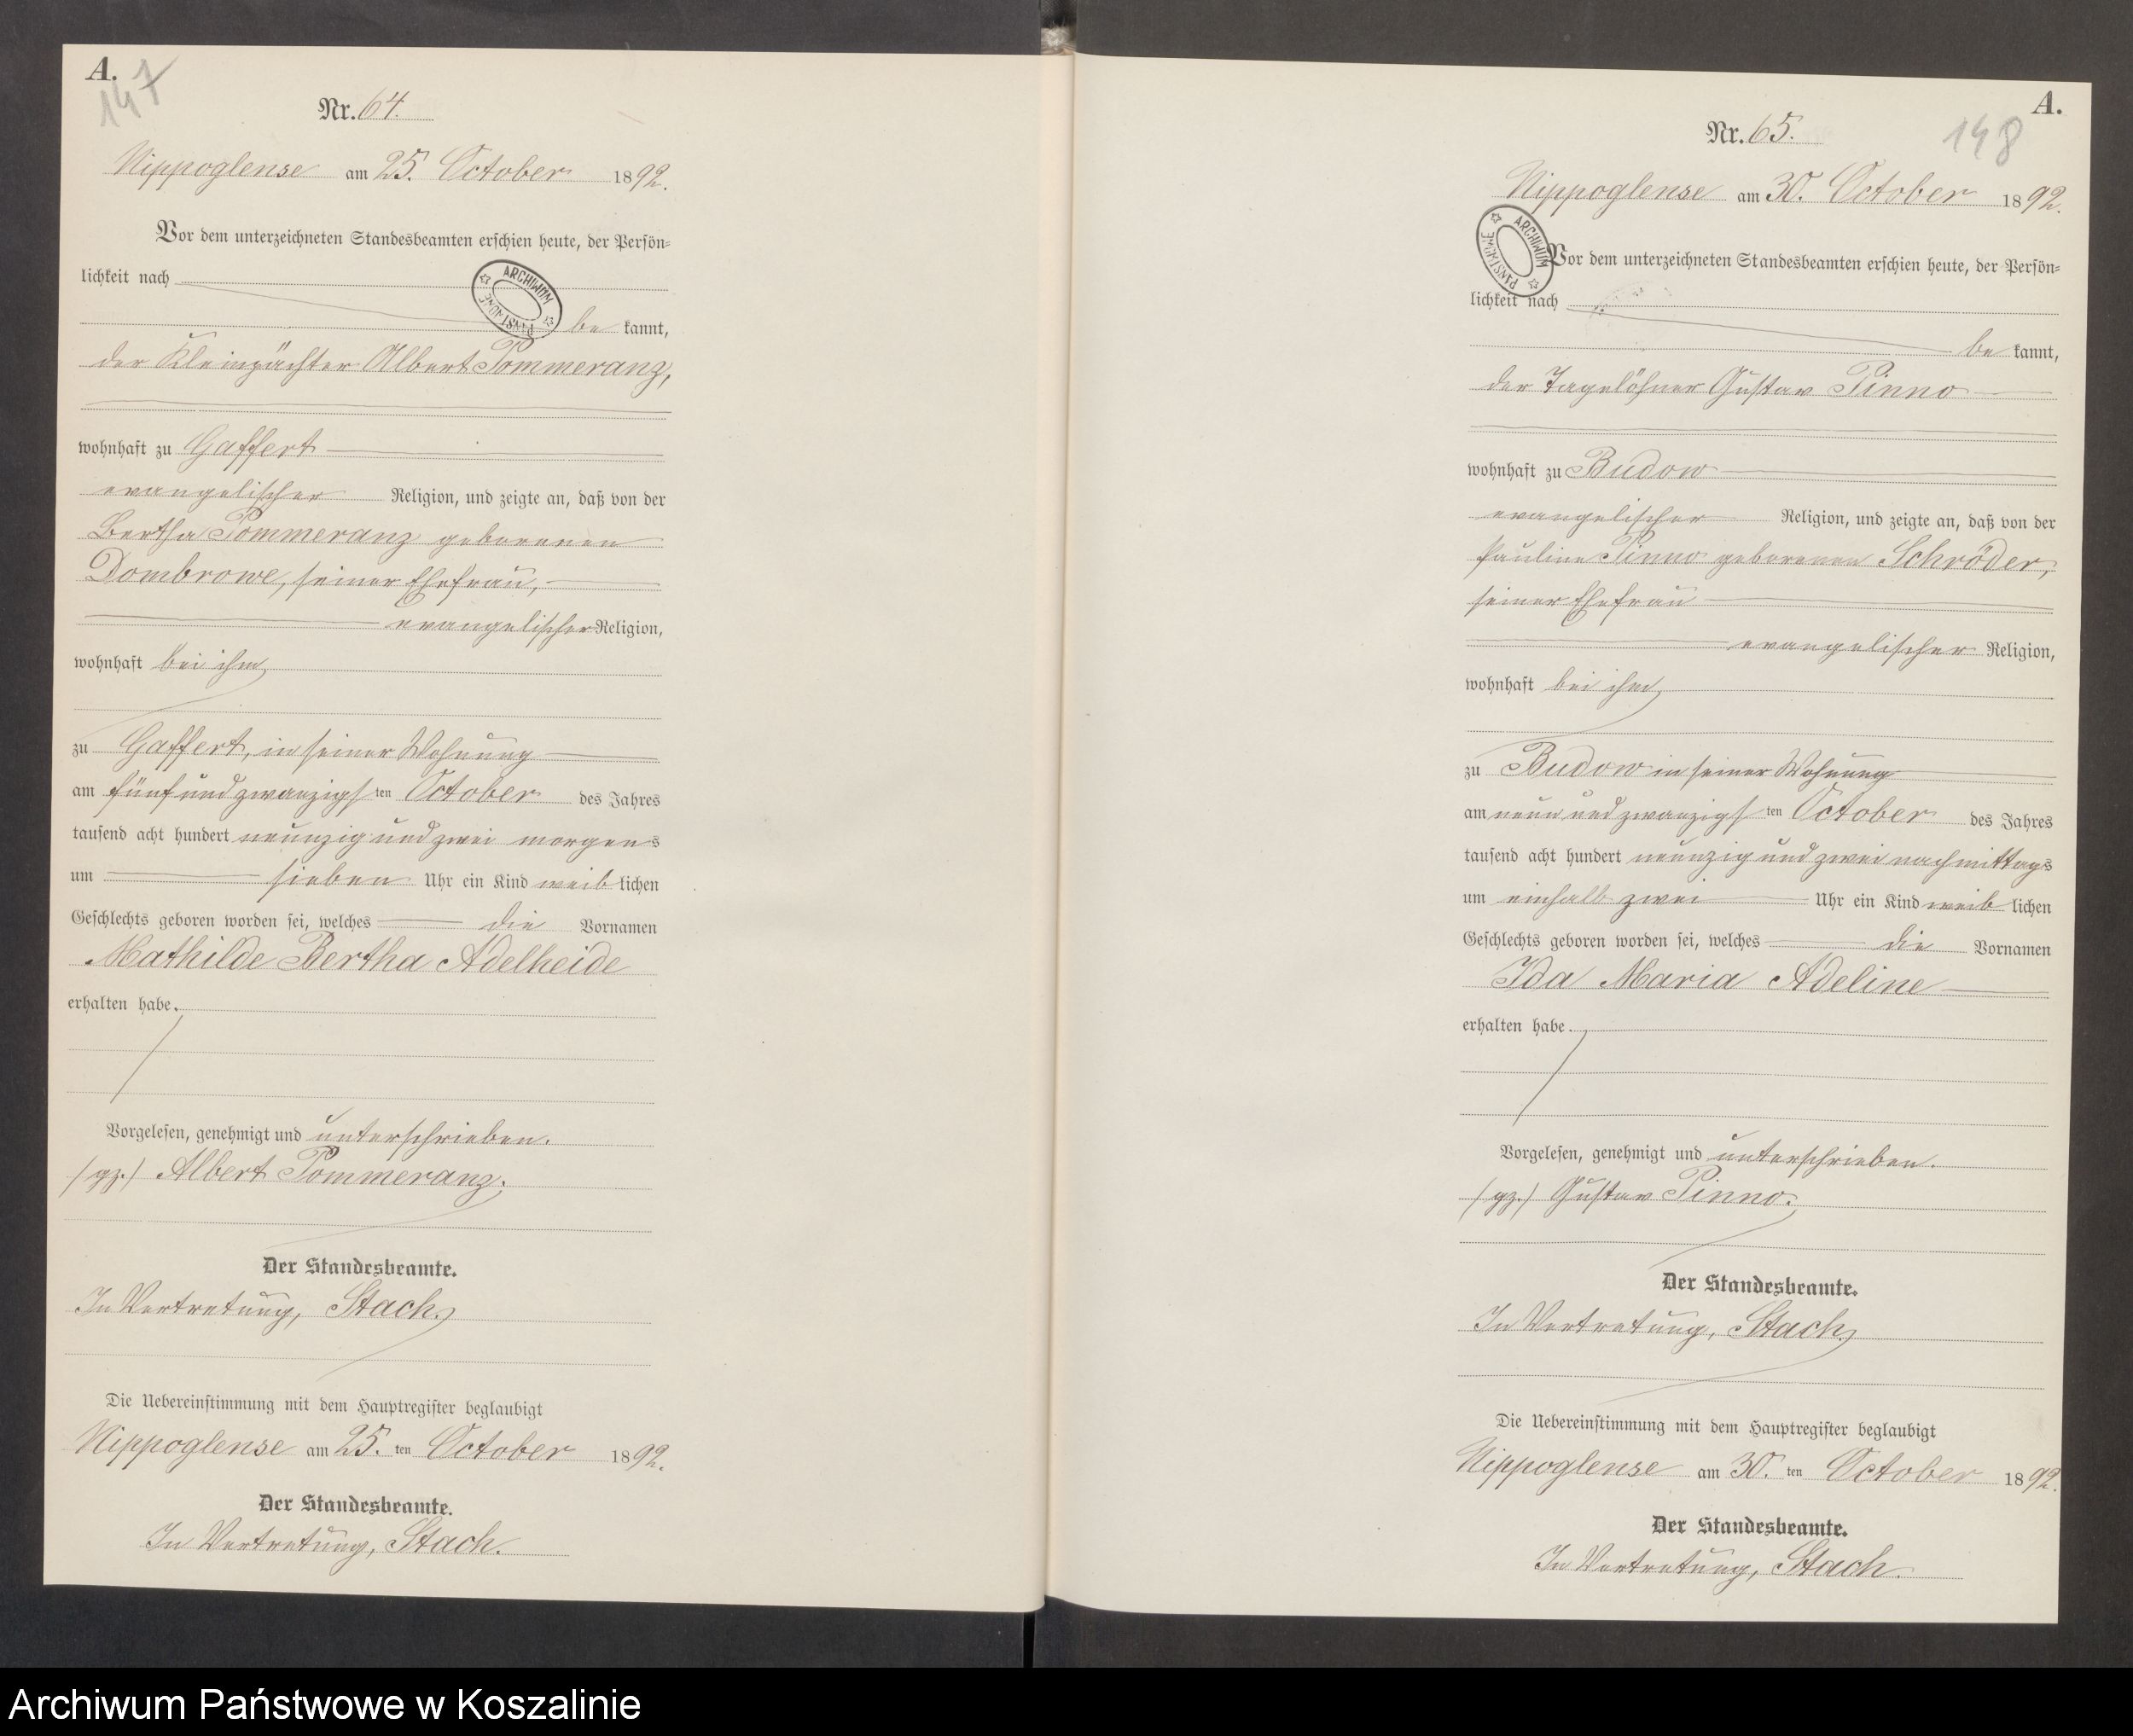 A.
147
Nr. 64.
Nippoglense am 25. October 1892.
Vor dem unterzeichneten Standesbeamten erschien heute, der Persön=
lichkeit nach
ARCHIWUM PAŃSTWOWE
be kannt,
der Kleinpächter Albert Pommeranz,
wohnhaft zu Gaffert
evangelischer Religion, und zeigte an, daß von der
Bertha Pommeranz geborenen
Dombrowe, seiner Ehefrau,
evangelischer Religion,
wohnhaft bei ihm
zu Gaffert, in seiner Wohnung
am fünf und zwanzigsten October des Jahres
tausend acht hundert neunzig und zwei morgens
um sieben Uhr ein Kind weiblichen
Geschlechts geboren worden sei, welches die Vornamen
Mathilde Bertha Adelheide
erhalten habe.
Vorgelesen, genehmigt und unterschrieben.
/gz./ Albert Pommeranz.
Der Standesbeamte.
In Vertretung, Stach.
Die Uebereinstimmung mit dem Hauptregister beglaubigt
Nippoglense am 25. ten October 1892.
Der Standesbeamte.
In Vertretung, Stach.
A.
148
Nr. 65.
Nippoglense am 30. October 1892.
ARCHIWUM PAŃSTWOWE
Vor dem unterzeichneten Standesbeamten erschien heute, der Persön=
lichkeit nach
be kannt,
der Tagelöhner Gustav Pinno
wohnhaft zu Budow
evangelischer Religion, und zeigte an, daß von der
Pauline Pinno geborenen Schröder,
seiner Ehefrau
evangelischer Religion,
wohnhaft bei ihm
zu Budow in seiner Wohnung
am neun und zwanzigsten October des Jahres
tausend acht hundert neunzig und zwei nachmittags
um einhalb zwei Uhr ein Kind weiblichen
Geschlechts geboren worden sei, welches die Vornamen
Ida Maria Adeline
erhalten habe.
Vorgelesen, genehmigt und unterschrieben.
/gz./ Gustav Pinno.
Der Standesbeamte.
In Vertretung, Stach
Die Uebereinstimmung mit dem Hauptregister beglaubigt
Nippoglense am 30. ten October 1892.
Der Standesbeamte.
In Vertretung, Stach.
Archiwum Państwowe w Koszalinie